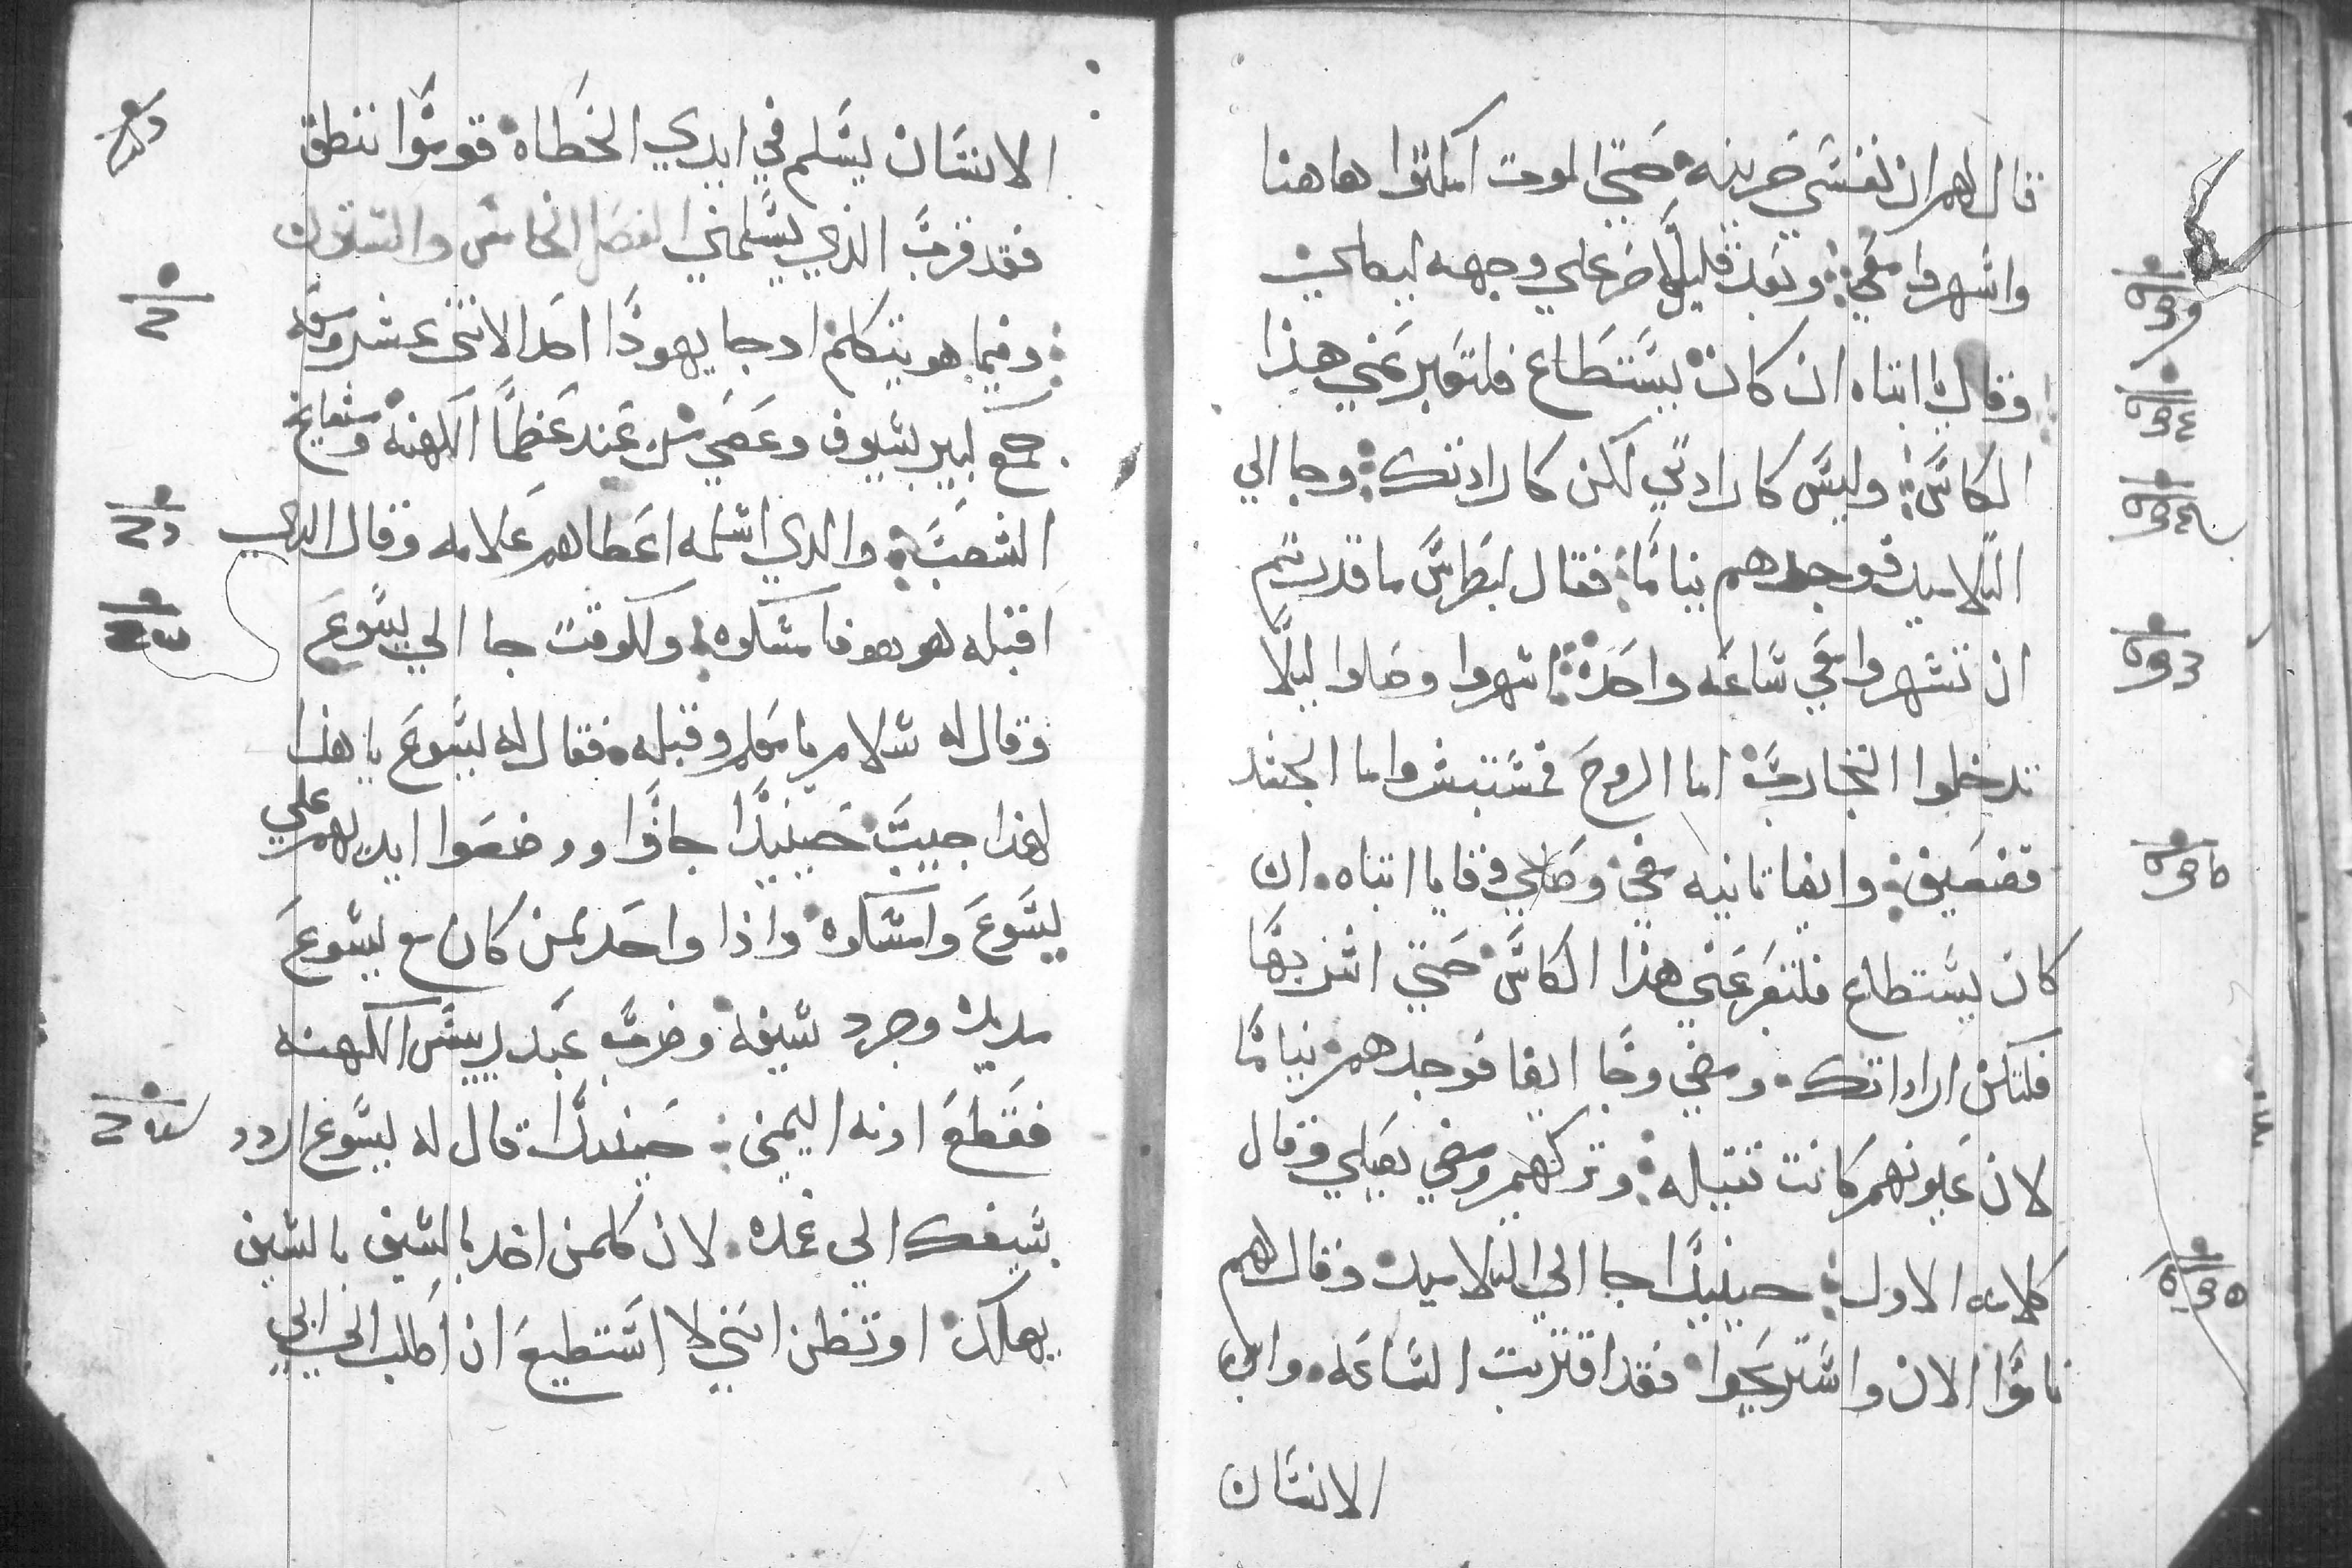 قال لهم ان نفسي حزينه حتي الموت امكثوا هاهنا
واسهروا معي وبعد قليلاً خر علي وجهه ليصلي
وقال يا ابتاه ان كان يستطاع فلتعبر عني هذا
الكاس وليس كارادتي لكن كارادتك وجا الي
التلاميد فوجدهم نياماً فقال لبطرس ما قدرتم
ان تسهروا معي ساعه واحده اسهروا وصلوا ليلا
تدخلوا التجارب اما الروح فمستبشر واما الجسد
فضعيف وايضا ثانيه مضي وصلي وقايا ابتاه ان
كان يستطاع فلتعبر عني هذا الكاس حتي اشربها
فلتكن اراداتك ومضي وجا ايضا فوجدهم نياماً
لان عيونهم كانت ثقيله وتركهم ومضي يصلي وقال
كلامه الاول حينيداً جا الي التلاميد وقال لهم
ناموا الان واستريحوا فقد اقتربت الساعه وابن
الانسان
الانسان يسلم في ايدي الخطاه قوموا ننطق
فقد قرب الذي يسلمني الفصل الخامس والستون
وفيما هو يتكلم ادجا يهودا احد الاتني عشر ومعه
جمع كبير بسيوف وعصي من عند عظما الكهنه ومشايخ
الشعب والدي اسلمه اعطاهم علامه وقال الدي
اقبله هو هو فامسكوه وللوقت جا الي يسوع
وقال له سلام يا معلم وقبله فقال له يسوع يا هذا
لهذا جييت حينيداً جاوا ووضعوا ايديهم علي
يسوع وامسكوه واذا واحد ممن كان مع يسوع
مد يده وجرد سيفه وضرب عبد رييس الكهنه
فقطع ادنه اليمني حينيداً قال له يسوع اردد
سيفك الي غمده لان كلمن اخد بالسيف بالسيف
يهلك او تظن انني لا استطيع ان اطلب الي ابي